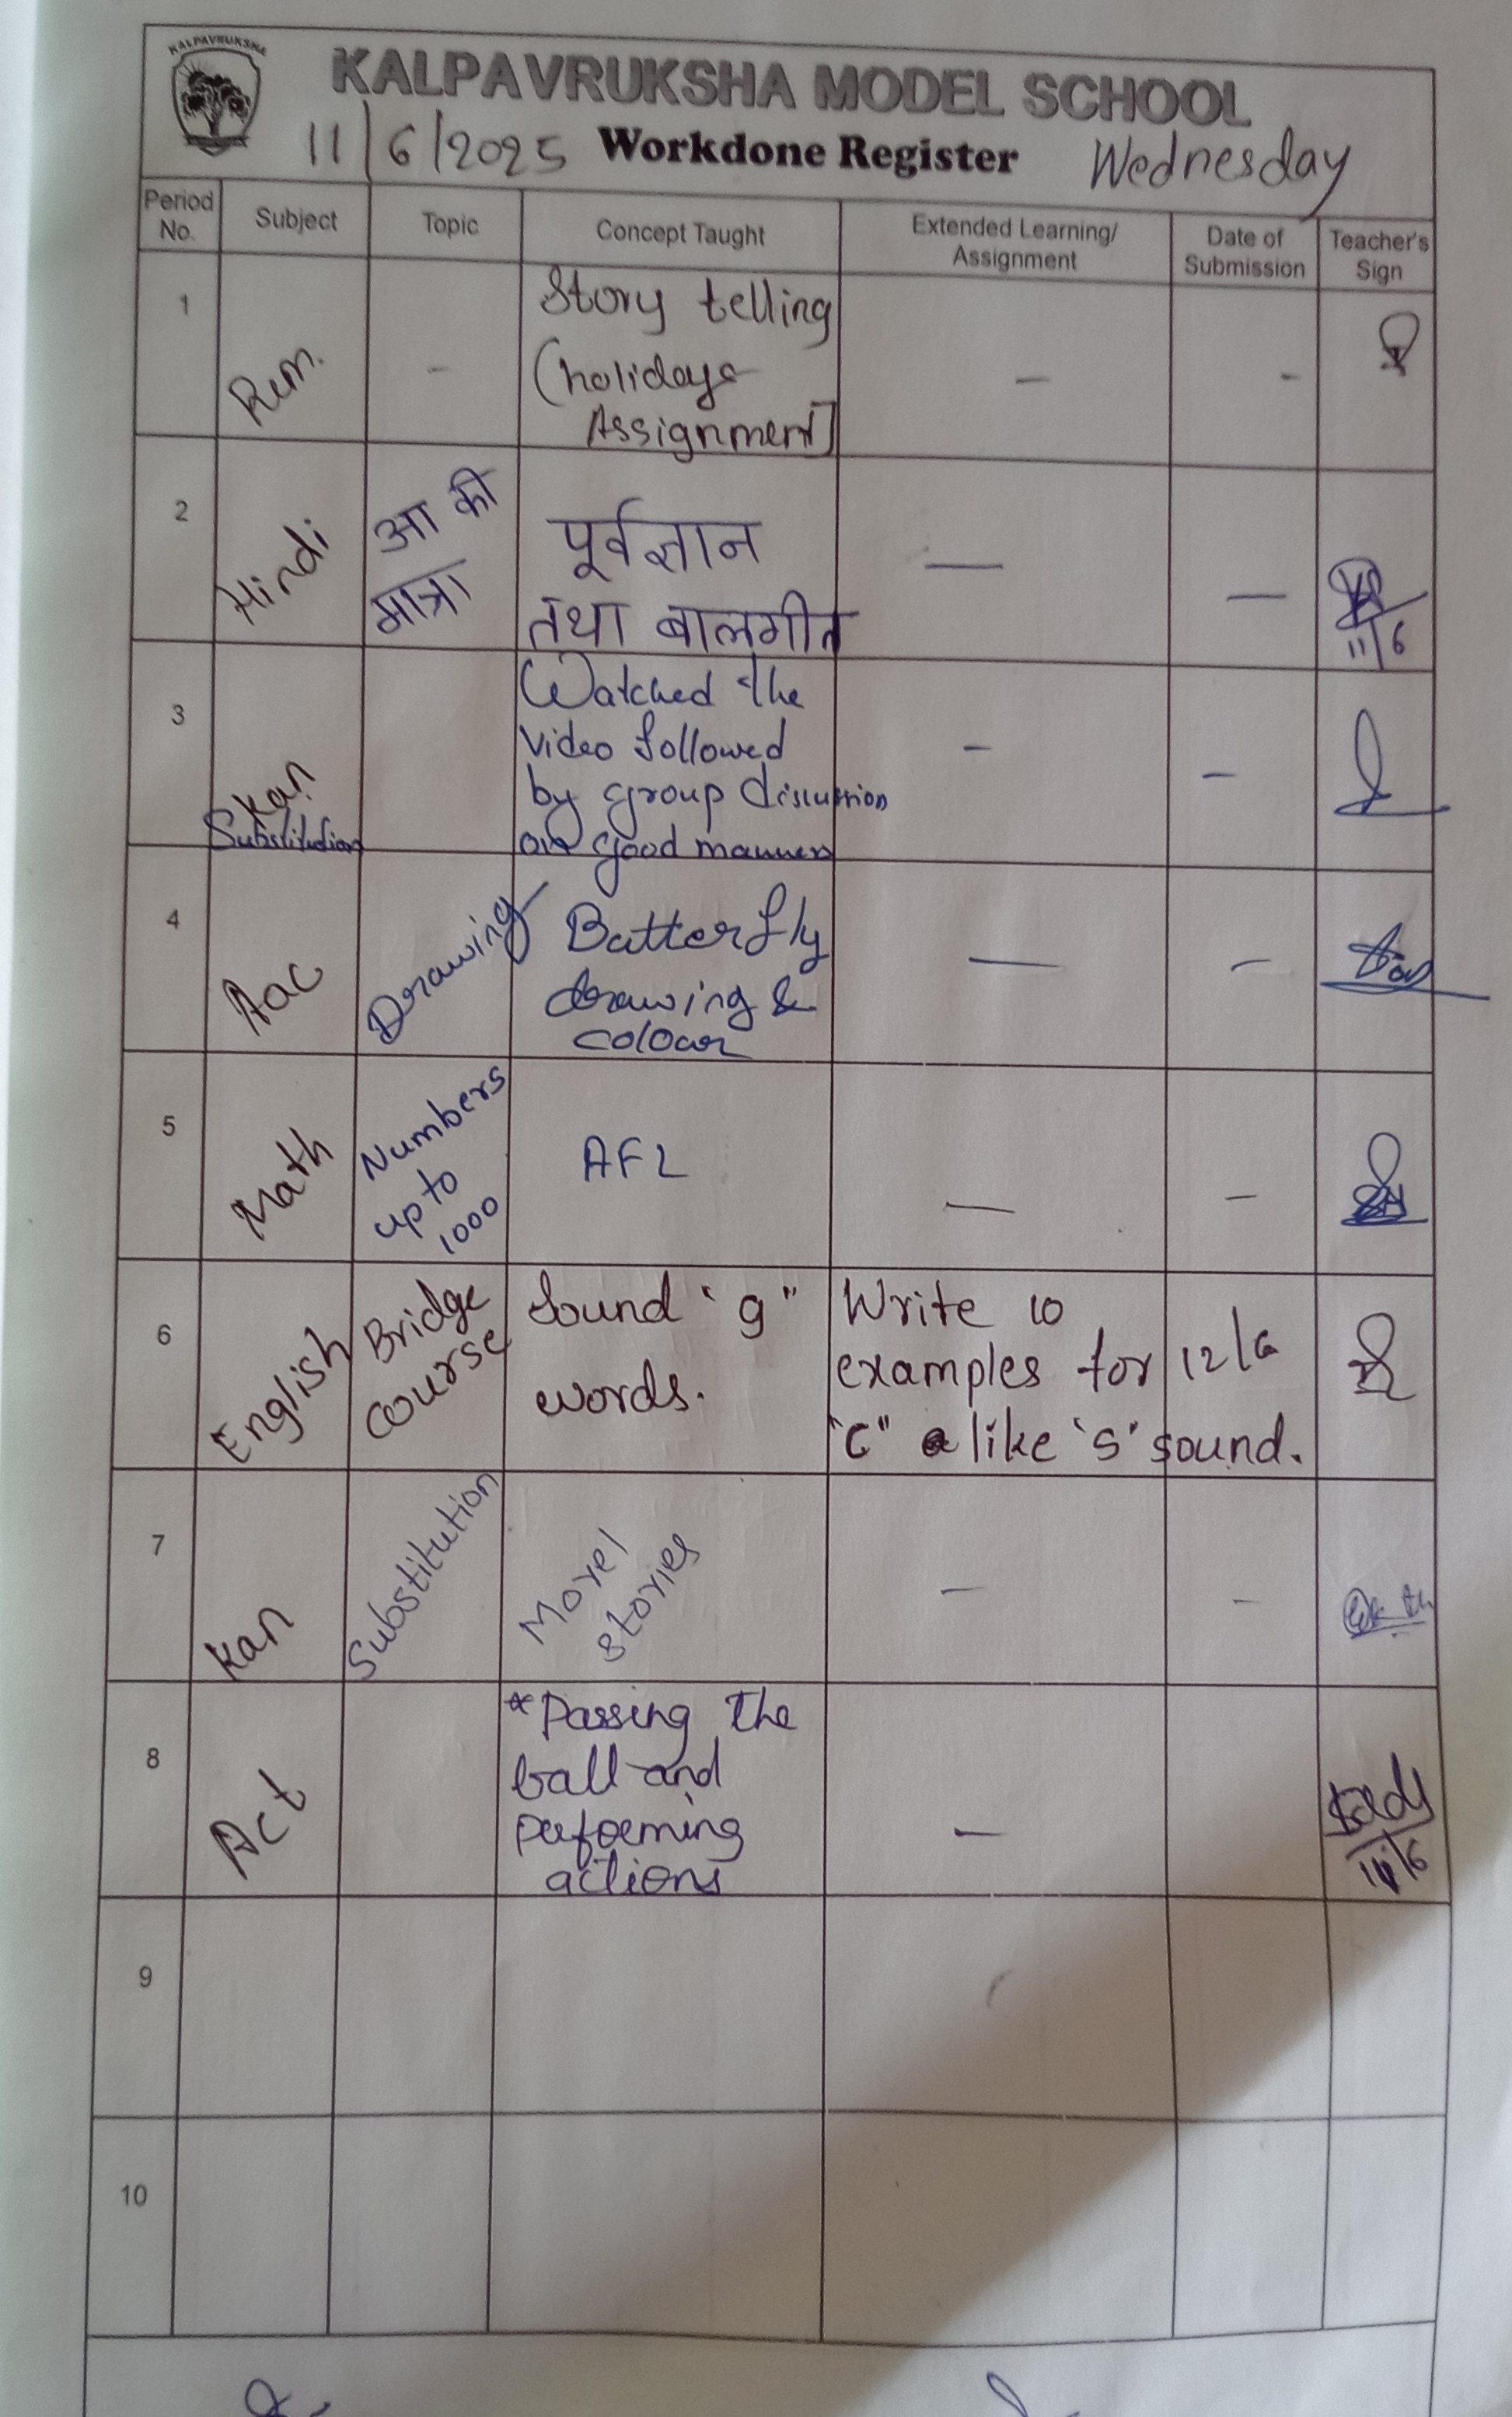 KALPAVRUKSHA
KALPAVRUKSHA MODEL SCHOOL
11/6/2025 Workdone Register Wednesday
Period No. Subject Topic Concept Taught Extended Learning/ Assignment Date of Submission Teacher's Sign
1 Rem. - Story telling
(holidays
Assignment] - -
2 Hindi आ की
मात्रा
पूर्वज्ञान
तथा बालगीत — —
11/6
3 Kan
Substitution
Watched the
video followed
by group discussion
on good manners - -
4 Aac Drawing Batterfly
drawing &
colour — -
5 Math Numbers
up to
1000
AFL — -
6 English Bridge
course
Sound "g"
words.
Write 10
examples for
"C" like 's' sound.
12/6
7 Kan Substitution Morel
stories - -
8 Act *Passing the
ball and
performing
actions -
11/6
9
10